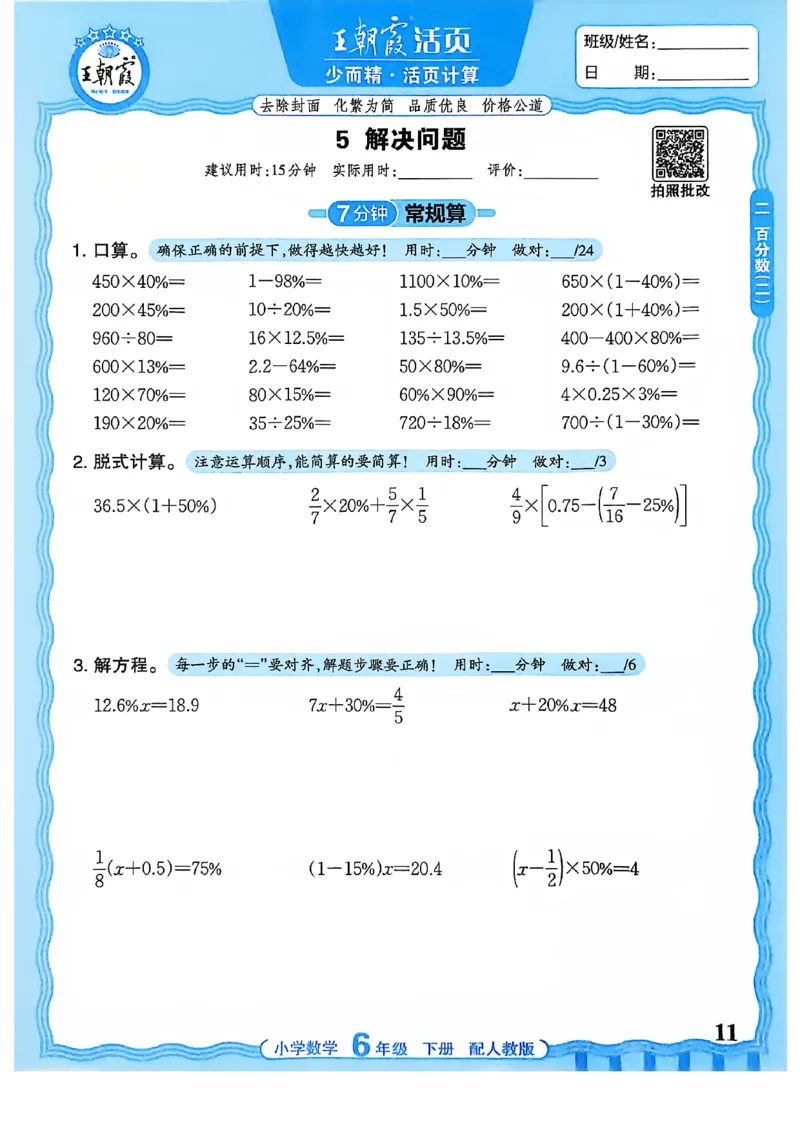 王朝霞
王朝霞活页
少而精·活页计算
班级/姓名:
日 期:
去除封面 化繁为简 品质优良 价格公道
5 解决问题
建议用时:15分钟 实际用时:________ 评价:________
拍照批改
7分钟 常规算
二 百分数(二)
1. 口算。 确保正确的前提下,做得越快越好! 用时:___分钟 做对:___/24
450×40%= 1-98%= 1100×10%= 650×(1-40%)=
200×45%= 10÷20%= 1.5×50%= 200×(1+40%)=
960÷80= 16×12.5%= 135÷13.5%= 400-400×80%=
600×13%= 2.2-64%= 50×80%= 9.6÷(1-60%)=
120×70%= 80×15%= 60%×90%= 4×0.25×3%=
190×20%= 35÷25%= 720÷18%= 700÷(1-30%)=
2. 脱式计算。 注意运算顺序,能简算的要简算! 用时:___分钟 做对:___/3
36.5×(1+50%) 2/7×20%+5/7×1/5 4/9×[0.75-(7/16-25%)]
3. 解方程。 每一步的“=”要对齐,解题步骤要正确! 用时:___分钟 做对:___/6
12.6%x=18.9 7x+30%=4/5 x+20%x=48
1/8(x+0.5)=75% (1-15%)x=20.4 (x-1/2)×50%=4
11
小学数学 6年级 下册 配人教版